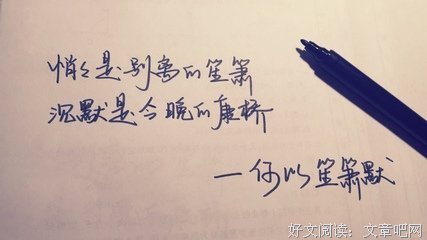 悄々是别离的笙箫
沉默是今晚的康桥
—何以笙箫默
好文阅读：文章吧网